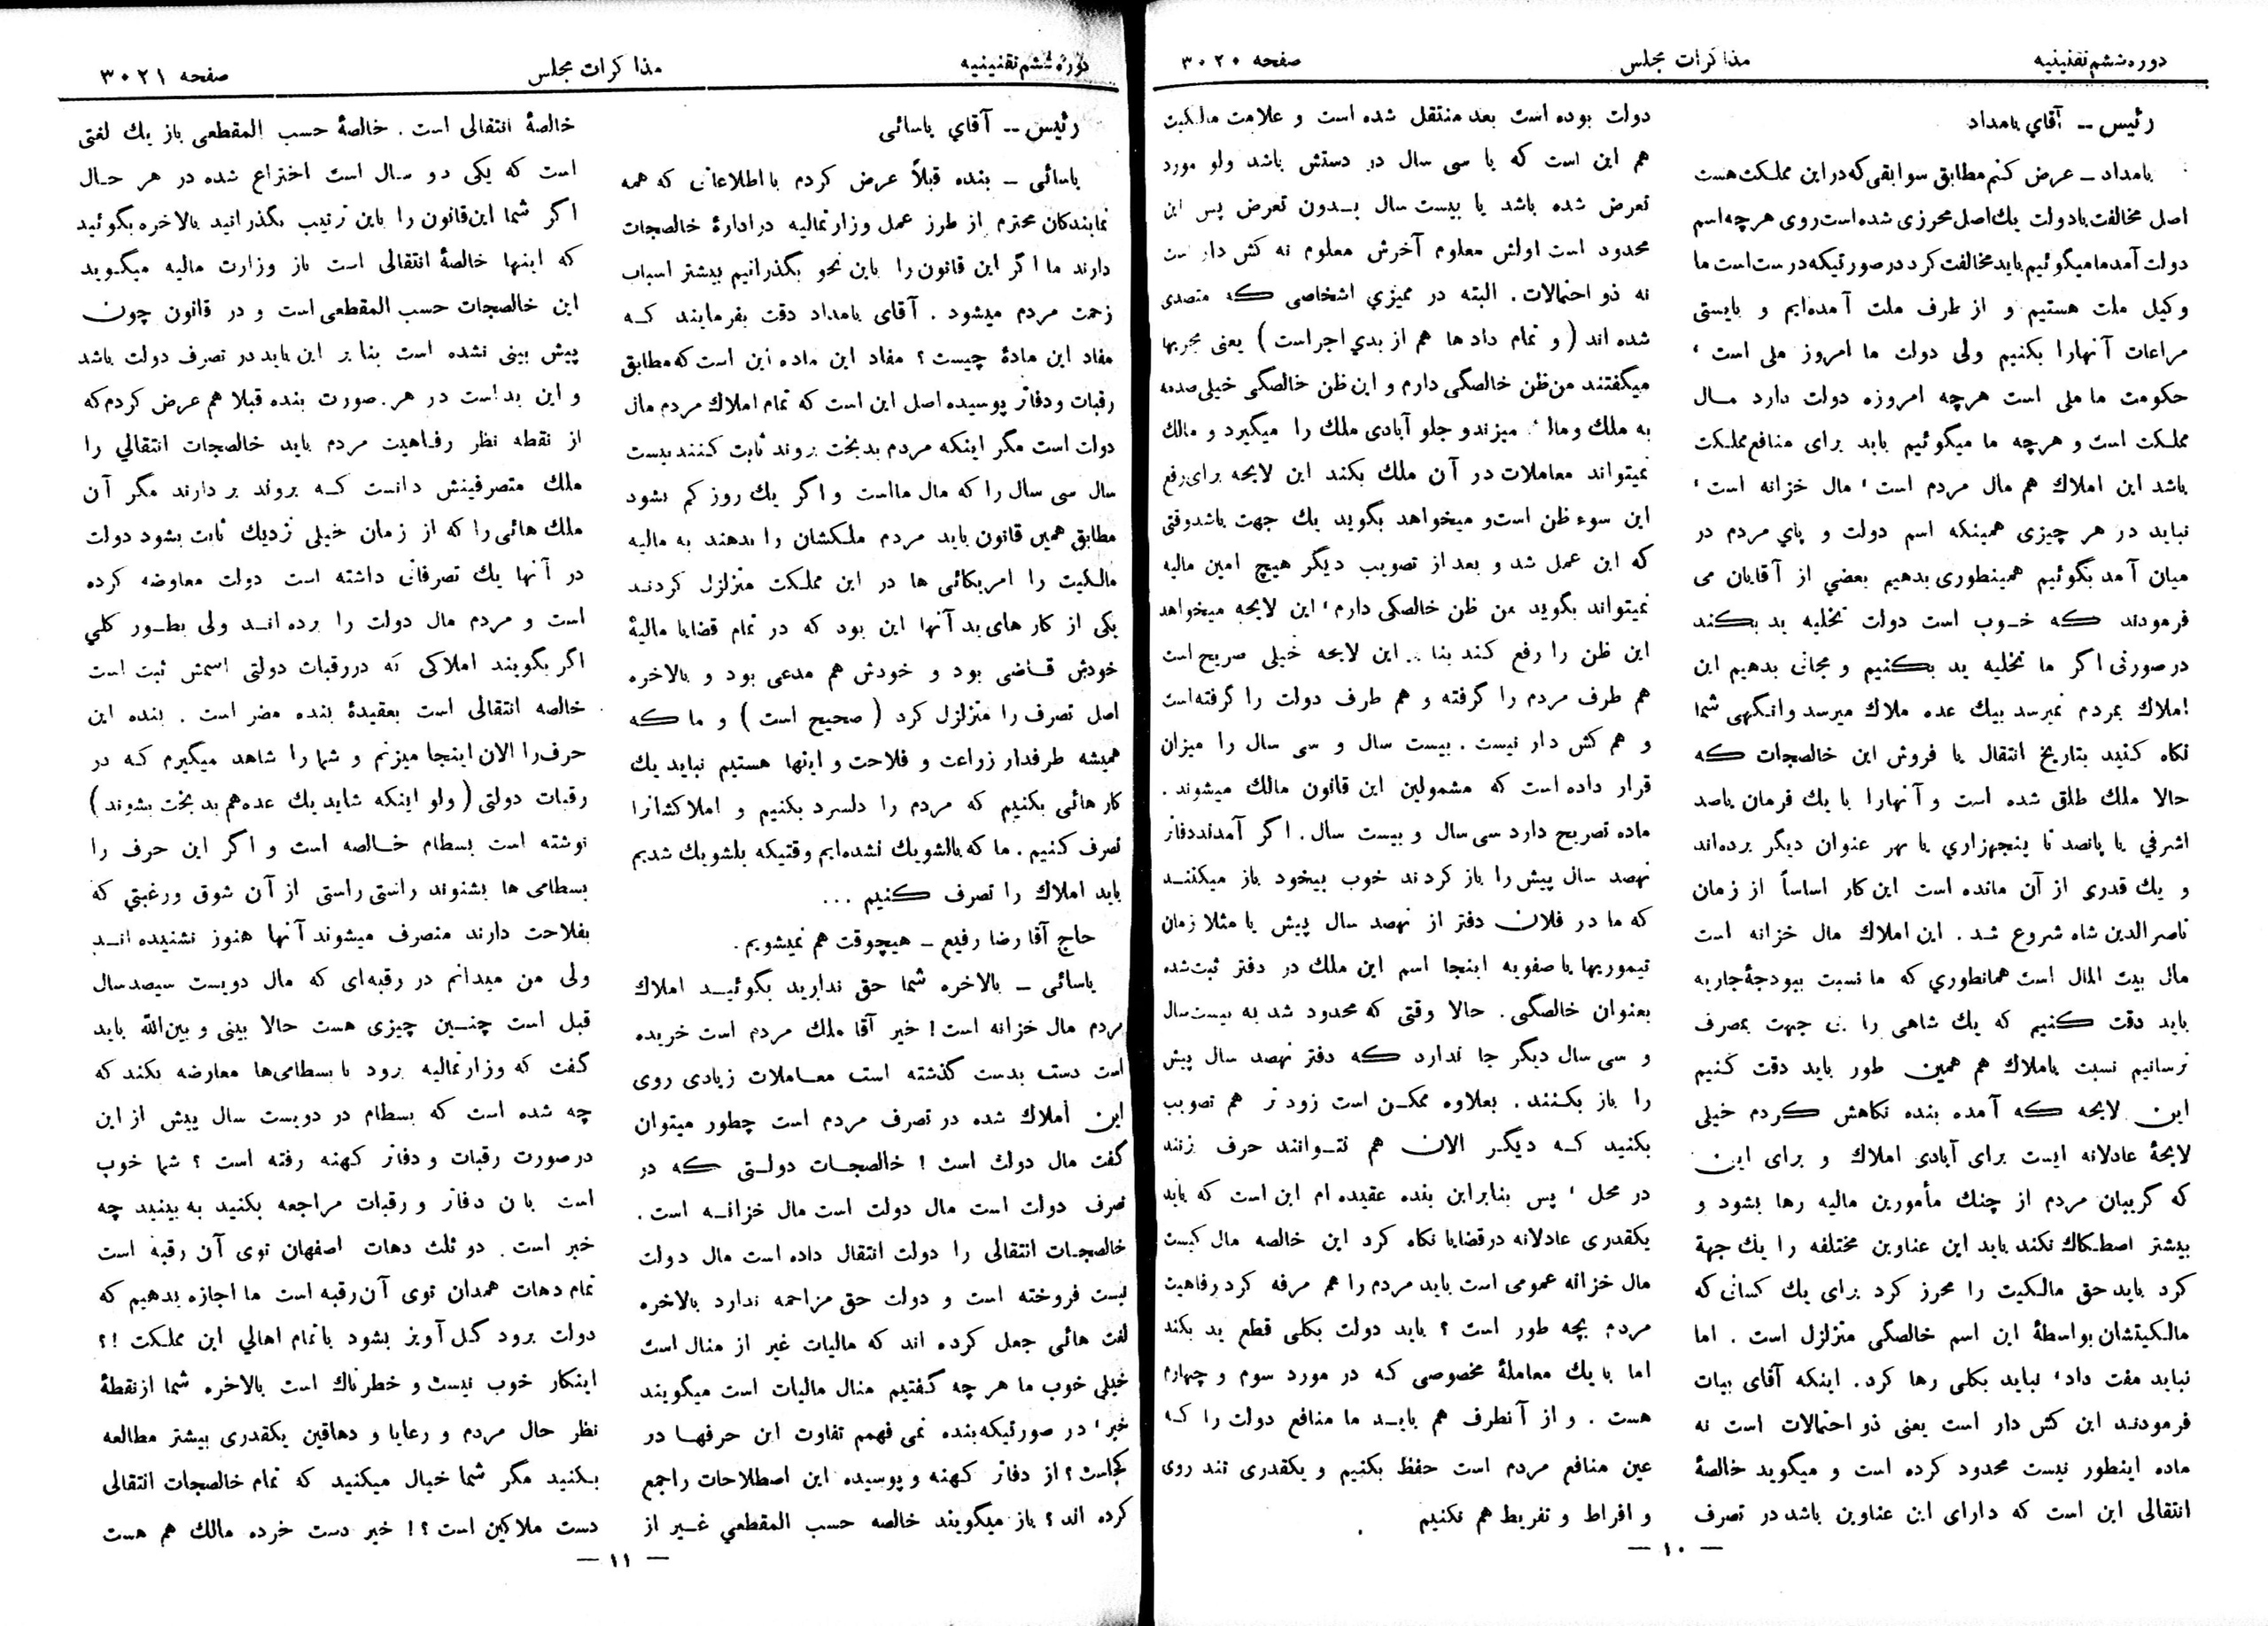 دوره ششم تقنینیه
مذاکرات مجلس
صفحه ۳۰۲۰
رئیس -- آقای بامداد
بامداد ـ عرض کنم مطابق سوابقی که در این مملکت هست
اصل مخالفت با دولت یك اصل محرزی شده است روی هر چه اسم
دولت آمد ما میگوئیم باید مخالفت کرد در صورتیکه درست است ما
وکیل ملت هستیم و از طرف ملت آمده‌ایم و بایستی
مراعات آنهارا بکنیم ولی دولت ما امروز ملی است ،
حکومت ما ملی است هرچه امروزه دولت دارد مـال
مملکت است و هرچه ما میگوئیم باید برای منافع مملکت
باشد این املاك هم مال مردم است ، مال خزانه است ،
نباید در هر چیزی همینکه اسم دولت و پای مردم در
میان آمد بگوئیم همینطوری بدهیم بعضی از آقایان می
فرمودند که خـوب است دولت تخلیه ید بکند
در صورتی اگر ما تخلیه ید بکنیم و مجانی بدهیم این
املاك بمردم نمیرسد بیك عده ملاك میرسد وانگهی شما
نگاه کنید بتاریخ انتقال یا فروش این خالصجات که
حالا ملك طلق شده است و آنهارا با یك فرمان یاصد
اشرفی یا پانصد تا پنجهزاری یا بهر عنوان دیگر برده‌اند
و یك قدری از آن مانده است این کار اساساً از زمان
ناصرالدین شاه شروع شد . این املاك مال خزانه است
مال بیت المال است همانطوری که ما نسبت ببودجهٔ جاریه
باید دقت کنیم که یك شاهی را بی جهت بمصرف
نرسانیم نسبت باملاك هم همین طور باید دقت کنیم
این لایحه که آمده بنده نگاهش کردم خیلی
لایحهٔ عادلانه ایست برای آبادی املاك و برای این
که گریبان مردم از چنك مأمورین مالیه رها بشود و
بیشتر اصطکاك نکند باید این عناوین مختلفه را یك جهة
کرد باید حق مالکیت را محرز کرد برای یك کسانی که
مالکیتشان بواسطهٔ این اسم خالصگی متزلزل است . اما
نباید مفت داد ، نباید بکلی رها کرد . اینکه آقای بیات
فرمودند این کش دار است یعنی ذو احتمالات است نه
ماده اینطور نیست محدود کرده است و میگوید خالصهٔ
انتقالی این است که دارای این عناوین باشد در تصرف
دولت بوده است بعد منتقل شده است و علامت مالکیت
هم این است که یا سی سال در دستش باشد ولو مورد
تعرض شده باشد یا بیست سال بـدون تعرض پس این
محدود است اولش معلوم آخرش معلوم نه کش دار است
نه ذو احتمالات . البته در ممیزی اشخاصی که متصدی
شده اند ( و تمام داد ها هم از بدی اجراست ) یعنی مجریها
میگفتند من ظن خالصگی دارم و این ظن خالصگی خیلی صدمه
به ملك و مالك میزند و جلو آبادی ملك را میگیرد و مالك
نمیتواند معاملات در آن ملك بکند این لایحه برای رفع
این سوء ظن است و میخواهد بگوید یك جهت باشد وقتی
که این عمل شد و بعد از تصویب دیگر هیچ امین مالیه
نمیتواند بگوید من ظن خالصگی دارم ، این لایحه میخواهد
این ظن را رفع کند بنا بر این لایحه خیلی صریح است
هم طرف مردم را گرفته و هم طرف دولت را گرفته است
و هم کش دار نیست . بیست سال و سی سال را میزان
قرار داده است که مشمولین این قانون مالك میشوند .
ماده تصریح دارد سی سال و بیست سال . اگر آمدند دفاتر
نهصد سال پیش را باز کردند خوب بیخود باز میکنند
که ما در فلان دفتر از نهصد سال پیش یا مثلا زمان
تیموریها یا صفویه اینجا اسم این ملك در دفتر ثبت شده
بعنوان خالصگی . حالا وقتی که محدود شد به بیست سال
و سی سال دیگر جا ندارد که دفتر نهصد سال پیش
را باز بکنند . بعلاوه ممکن است زود تر هم تصویب
بکنید کـه دیگر الان هم نتـوانند حرف بزنند
در محل ، پس بنابراین بنده عقیده ام این است که باید
یکقدری عادلانه در قضایا نگاه کرد این خالصه مال کیست
مال خزانه عمومی است باید مردم را هم مرفه کرد رفاهیت
مردم بچه طور است ؟ باید دولت بکلی قطع ید بکند
اما با یك معاملهٔ مخصوصی که در مورد سوم و چهارم
هست . و از آنطرف هم بایـد ما منافع دولت را کـه
عین منافع مردم است حفظ بکنیم و یکقدری تند روی
و افراط و تفریط هم نکنیم
— ۱۰ —
دوره ششم تقنینیه
مذاکرات مجلس
صفحه ۳۰۲۱
رئیس -- آقای یاسائی
یاسائی ـ بنده قبلاً عرض کردم با اطلاعاتی که همه
نمایندگان محترم از طرز عمل وزارتمالیه در ادارهٔ خالصجات
دارند ما اگر این قانون را باین نحو بگذرانیم بیشتر اسباب
زحمت مردم میشود . آقای بامداد دقت بفرمایند کـه
مفاد این مادهٔ چیست ؟ مفاد این ماده این است که مطابق
رقبات و دفاتر پوسیده اصل این است که تمام املاك مردم مال
دولت است مگر اینکه مردم بدبخت بروند ثابت کنند بیست
سال سی سال را که مال ماست و اگر یك روز کم بشود
مطابق همین قانون باید مردم ملکشان را بدهند به مالیه
مالکیت را امریکائی ها در این مملکت متزلزل کردند
یکی از کار های بد آنها این بود که در تمام قضایا مالیهٔ
خودش قـاضی بود و خودش هم مدعی بود و بالاخره
اصل تصرف را متزلزل کرد ( صحیح است ) و ما که
همیشه طرفدار زراعت و فلاحت و اینها هستیم نباید یك
کار هائی بکنیم که مردم را دلسرد بکنیم و املاکشانرا
تصرف کنیم . ما که بالشویك نشده‌ایم وقتیکه بلشویك شدیم
باید املاك را تصرف کنیم ...
حاج آقا رضا رفیع ـ هیچوقت هم نمیشویم .
یاسائی ـ بالاخره شما حق ندارید بگوئیـد املاك
مردم مال خزانه است ! خیر آقا ملك مردم است خریده
است دست بدست گذشته است معـاملات زیادی روی
این املاك شده در تصرف مردم است چطور میتوان
گفت مال دولت است ! خالصجـات دولتی که در
تصرف دولت است مال دولت است مال خزانـه است .
خالصجـات انتقالی را دولت انتقال داده است مال دولت
نیست فروخته است و دولت حق مزاحمه ندارد بالاخره
لغت هائی جعل کرده اند که مالیات غیر از منال است
خیلی خوب ما هر چه گفتیم منال مالیات است میگویند
خیر ، در صورتیکه بنده نمی فهمم تفاوت این حرفهـا در
کجاست ؟ از دفاتر کهنه و پوسیده این اصطلاحات را جمع
کرده اند ؟ باز میگویند خالصه حسب المقطعی غـیر از
خالصهٔ انتقالی است . خالصهٔ حسب المقطعی باز یك لغتی
است که یکی دو سال است اختراع شده در هر حـال
اگر شما این قانون را باین ترتیب بگذرانید بالاخره بگوئید
که اینها خالصهٔ انتقالی است باز وزارت مالیه میگوید
این خالصجات حسب المقطعی است و در قانون چون
پیش بینی نشده است بنا بر این باید در تصرف دولت باشد
و این بد است در هر صورت بنده قبلا هم عرض کردم که
از نقطه نظر رفـاهیت مردم باید خالصجات انتقالی را
ملك متصرفینش دانست کـه بروند بر دارند مگر آن
ملك هائی را که از زمان خیلی نزدیك ثابت بشود دولت
در آنها یك تصرفاتی داشته است دولت معاوضه کرده
است و مردم مال دولت را برده انـد ولی بطـور کلی
اگر بگویند املاکی که در رقبات دولتی اسمش ثبت است
خالصه انتقالی است بعقیدهٔ بنده مضر است . بنده این
حرف را الان اینجا میزنم و شما را شاهد میگیرم کـه در
رقبات دولتی ( ولو اینکه شاید یك عده هم بد بخت بشوند )
نوشته است بسطام خـالصه است و اگر این حرف را
بسطامی ها بشنوند راستی راستی از آن شوق و رغبتی که
بفلاحت دارند منصرف میشوند آنها هنوز نشنیده انـد
ولی من میدانم در رقبه‌ای که مال دویست سیصد سال
قبل است چنـین چیزی هست حالا بینی و بین‌الله باید
گفت که وزارتمالیه برود با بسطامی‌ها معارضه بکند که
چه شده است که بسطام در دویست سال پیش از این
در صورت رقبات و دفاتر کهنه رفته است ؟ شما خوب
است بآن دفاتر و رقبات مراجعه بکنید به بینید چه
خبر است . دو ثلث دهات اصفهان توی آن رقبه است
تمام دهات همدان توی آن رقبه است ما اجازه بدهیم که
دولت برود گـل آویز بشود با تمام اهالی این مملکت !؟
اینکار خوب نیست و خطرناك است بالاخره شما از نقطهٔ
نظر حال مردم و رعایا و دهاقین یکقدری بیشتر مطالعه
بکنید مگر شما خیال میکنید که تمام خالصجات انتقالی
دست ملاکین است ؟! خیر دست خرده مالك هم هست
— ۱۱ —